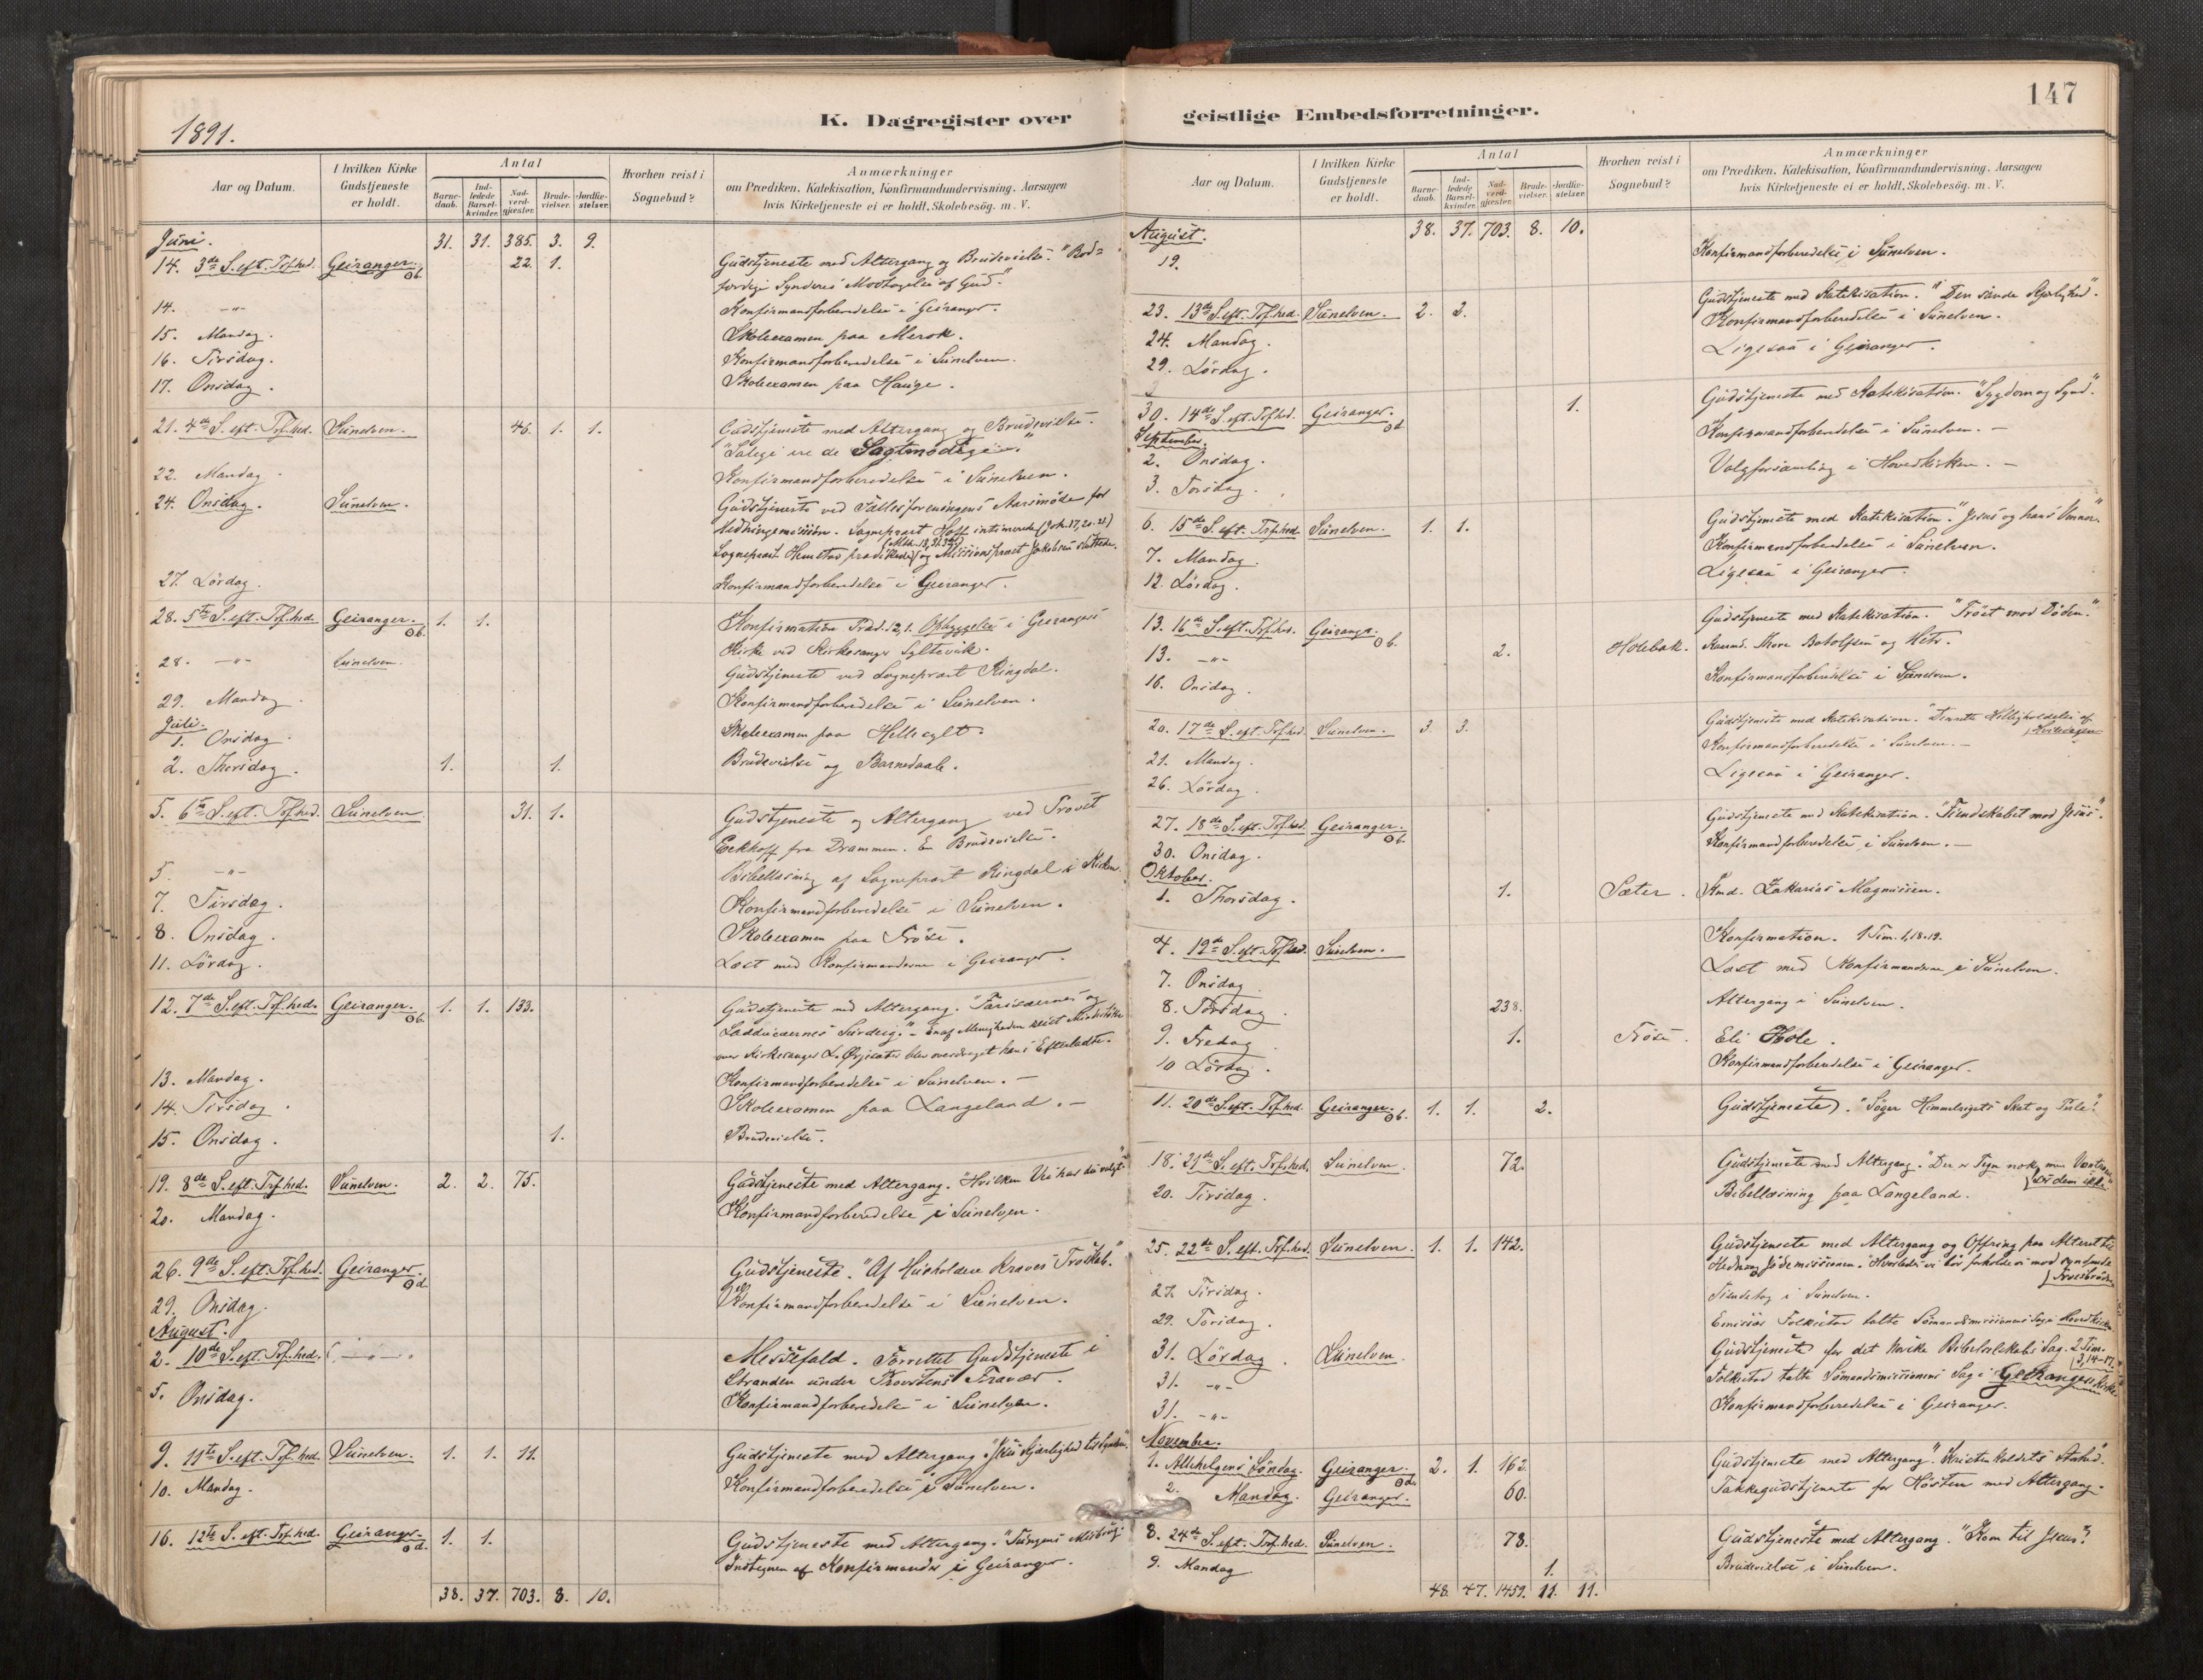 147
1891.
K. Dagregister over
geistlige Embedsforretninger.
Aar og Datum.
I hvilken Kirke Gudstjeneste er holdt.
Antal
Barne-daab. Ind-ledede Barsel-kvinder. Nad-verd-gjester. Brude-vielser. Jordfæ-stelser.
Hvorhen reist i Sognebud?
Anmærkninger
om Prædiken, Katekisation, Konfirmandundervisning, Aarsagen
hvis Kirketjeneste ei er holdt, Skolebesög, m. V.
Juni. 31. 31. 385. 3. 9.
14. 3de S. eft. Tref.hed. Geiranger. 22. 1. Gudstjeneste med Altergang og Brudevielse.
færdige Synderes Modtagelse af Gud."
14. -"- Konfirmandforberedelse i Geiranger.
15. Mandag. Skoleexamen paa Merok.
16. Tirsdag. Konfirmandforberedelse i Sunelven.
17. Onsdag. Skoleexamen paa Hauge.
21. 4de S. eft. Tref.hed. Sunelven. 46. 1. 1. Gudstjeneste med Altergang og Brudevielse.
"Salige ere de Sagtmodige."
22. Mandag Konfirmandforberedelse i Sunelven.
24. Onsdag. Sunelven. Gudstjeneste ved Fællesforeningens Aarsmöde for
Hedningemission. Sogneprest Hoff intimerede (Joh. 17, 20. 21)
Sogneprest prædikede og Missionsprest Jakobsen sluttede.
27. Lördag. Konfirmandforberedelse i Geiranger.
28. 5te S. eft. Tref.hed. Geiranger. 1. 1. Konfirmation Præd. 12, 1. Opbyggelse i Geirangers
Kirke ved Kirkesanger Syltevik.
28. -"- Sunelven. Gudstjeneste ved Sogneprest Ringdal.
29. Mandag Konfirmandforberedelse i Sunelven.
Juli.
1. Onsdag. Skoleexamen paa Hellesylt.
2. Thorsdag. 1. 1. Brudevielse og Barnedaab.
5. 6te S. eft. Tref.hed. Sunelven 31. 1. Gudstjeneste og Altergang ved Provst
Eckhoff fra Drammen. En Brudevielse.
5. -"- Bibellæsning af Sogneprest Ringdal i Kirken.
7. Tirsdag. Konfirmandforberedelse i Sunelven.
8. Onsdag. Skoleexamen paa Tröse.
11. Lördag. Læst med Konfirmanderne i Geiranger.
12. 7de S. eft. Tref.hed. Geiranger. 1. 1. 133. Gudstjeneste med Altergang. "Farisæernes og
Sadducæernes Surdeig." - En af Menigheden reist Mindestötte
over Kirkesanger blev overdraget hans Efterladte.
13. Mandag. Konfirmandforberedelse i Sunelven. -
14. Tirsdag. Skoleexamen paa Langeland. -
15. Onsdag. 1. Brudevielse.
19. 8de S. eft. Tref.hed. Sunelven. 2. 2. 75. Gudstjeneste med Altergang. "Hvilken Vei har du valgt"
20. Mandag. Konfirmandforberedelse i Sunelven.
26. 9de S. eft. Tref.hed. Geiranger. Gudstjeneste. "Af Husholdere kræves Troskab."
29. Onsdag. Konfirmandforberedelse i Sunelven.
August.
2. 10de S. eft. Tref.hed. Messefald. Forrettet Gudstjeneste i
Stranden under Provstens Fravær.
5. Onsdag. Konfirmandforberedelse i Sunelven.
9. 11te S. eft. Tref.hed. Sunelven. 1. 1. 11. Gudstjeneste med Altergang. Kjærlighed til
10. Mandag. Konfirmandforberedelse i Sunelven.
16. 12te S. eft. Tref.hed. Geiranger. 1. 1. Gudstjeneste med Altergang. "Tungens Misbrug."
Indtegnen af Konfirmander i Geiranger.
38. 37. 703. 8. 10.
Aar og Datum.
I hvilken Kirke Gudstjeneste er holdt.
Antal
Barne-daab. Ind-ledede Barsel-kvinder. Nad-verd-gjester. Brude-vielser. Jordfæ-stelser.
Hvorhen reist i Sognebud?
Anmærkninger
om Prædiken, Katekisation, Konfirmandundervisning, Aarsagen
hvis Kirketjeneste ei er holdt, Skolebesög, m. V.
August. 38. 37. 703. 8. 10.
19. Konfirmandforberedelse i Sunelven.
23. 13de S. eft. Tref.hed. Sunelven. 2. 2. Gudstjeneste med Katekisation. "Den sande Kjærlighed".
24. Mandag. Konfirmandforberedelse i Sunelven.
29. Lördag. Ligesaa i Geiranger.
30. 14de S. eft. Tref.hed. Geiranger. 1. Gudstjeneste med Katekisation. "Sygdom og Synd."
September.
2. Onsdag. Konfirmandforberedelse i Sunelven. -
3. Torsdag. Valgforsamling i Hovedkirken. -
6. 15de S. eft. Tref.hed. Sunelven. 1. 1. Gudstjeneste med Katekisation. "Jesus og hans Venner"
7. Mandag. Konfirmandforberedelse i Sunelven.
12. Lördag. Ligesaa i Geiranger.
13. 16de S. eft. Tref.hed. Geiranger. Gudstjeneste med Katekisation. "Tröst mod Döden."
13. -"- 2. Holebak. Botolfsen og Hstr.
16. Onsdag. Konfirmandforberedelse i Sunelven.
20. 17de S. eft. Tref.hed. Sunelven. 3. 3. Gudstjeneste med Katekisation. "Den rette Helligholdelse af Hviledagen
21. Mandag. Konfirmandforberedelse i Sunelven. -
26. Lördag. Ligesaa i Geiranger.
27. 18de S. eft. Tref.hed. Geiranger. Gudstjeneste med Katekisation. "Fiendskabet mod Jesus".
30. Onsdag. Konfirmandforberedelse i Sunelven. -
Oktober.
1. Thorsdag. 1. Sæter. Kmd. Zakarias Magnussen.
4. 19de S. eft. Tref.hed. Sunelven. Konfirmation. 1 Tim. 1, 18-19.
7. Onsdag Læst med Konfirmanderne i Sunelven.
8. Torsdag 238. Altergang i Sunelven.
9. Fredag 1. Tröse. Eli Hole.
10 Lördag. Konfirmandforberedelse i Geiranger.
11. 20de S. eft. Tref.hed. Geiranger. 1. 1. 2. Gudstjeneste. "Söger Himmerigets Skat og Perle."
18. 21de S. eft. Tref.hed. Sunelven. 72. Gudstjeneste med Altergang. "Der er Tegn nok, men Vantroen ser dem ikke"
20. Tirsdag. Bibellæsning paa Langeland.
25. 22de S. eft. Tref.hed. Sunelven. 1. 1. 142. Gudstjeneste med Altergang og Offring paa Alteret til
Hedning og Jödemissionen. "Hvorledes vi bör forholde os mod syndende Troesbrödre
27. Tirsdag. i Sunelven.
29. Torsdag. Emissær Folkestad talte Sömandsmissionens Sag i Hovedkirken.
31. Lördag. Sunelven. Gudstjeneste for det Norske Bibelselskabs Sag. 2 Tim. 3, 14-17.
31. -"- Folkestad talte Sömandsmissionens Sag i Geirangers Kirke
31. -"- Konfirmandforberedelse i Geiranger.
November.
1. Allehelgens Söndag. Geiranger. 2. 1. 162. Gudstjeneste med Altergang.
2. Mandag. Geiranger. 60. Takkegudstjeneste for Hösten med Altergang.
8. 24de S. eft. Tref.hed. Sunelven. 78. Gudstjeneste med Altergang. "Kom til Jesus."
9. Mandag 1. Brudevielse i Sunelven.
48. 47. 1459. 11. 11.